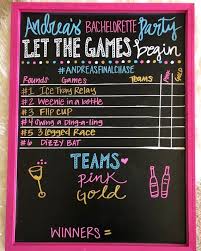 Andrea's BACHELORETTE Party
LET THE GAMES begin
#ANDREASFINALCHASE
Rounds Games TEAMS PINK GOLD
#1 Ice Tray Relay
#2 Weenie in a bottle
#3 Flip cup
#4 Swing a Ding-a-ling
#5 3 legged Race
#6 Dizzy Bat
TEAMS
pink
Gold
WINNERS=